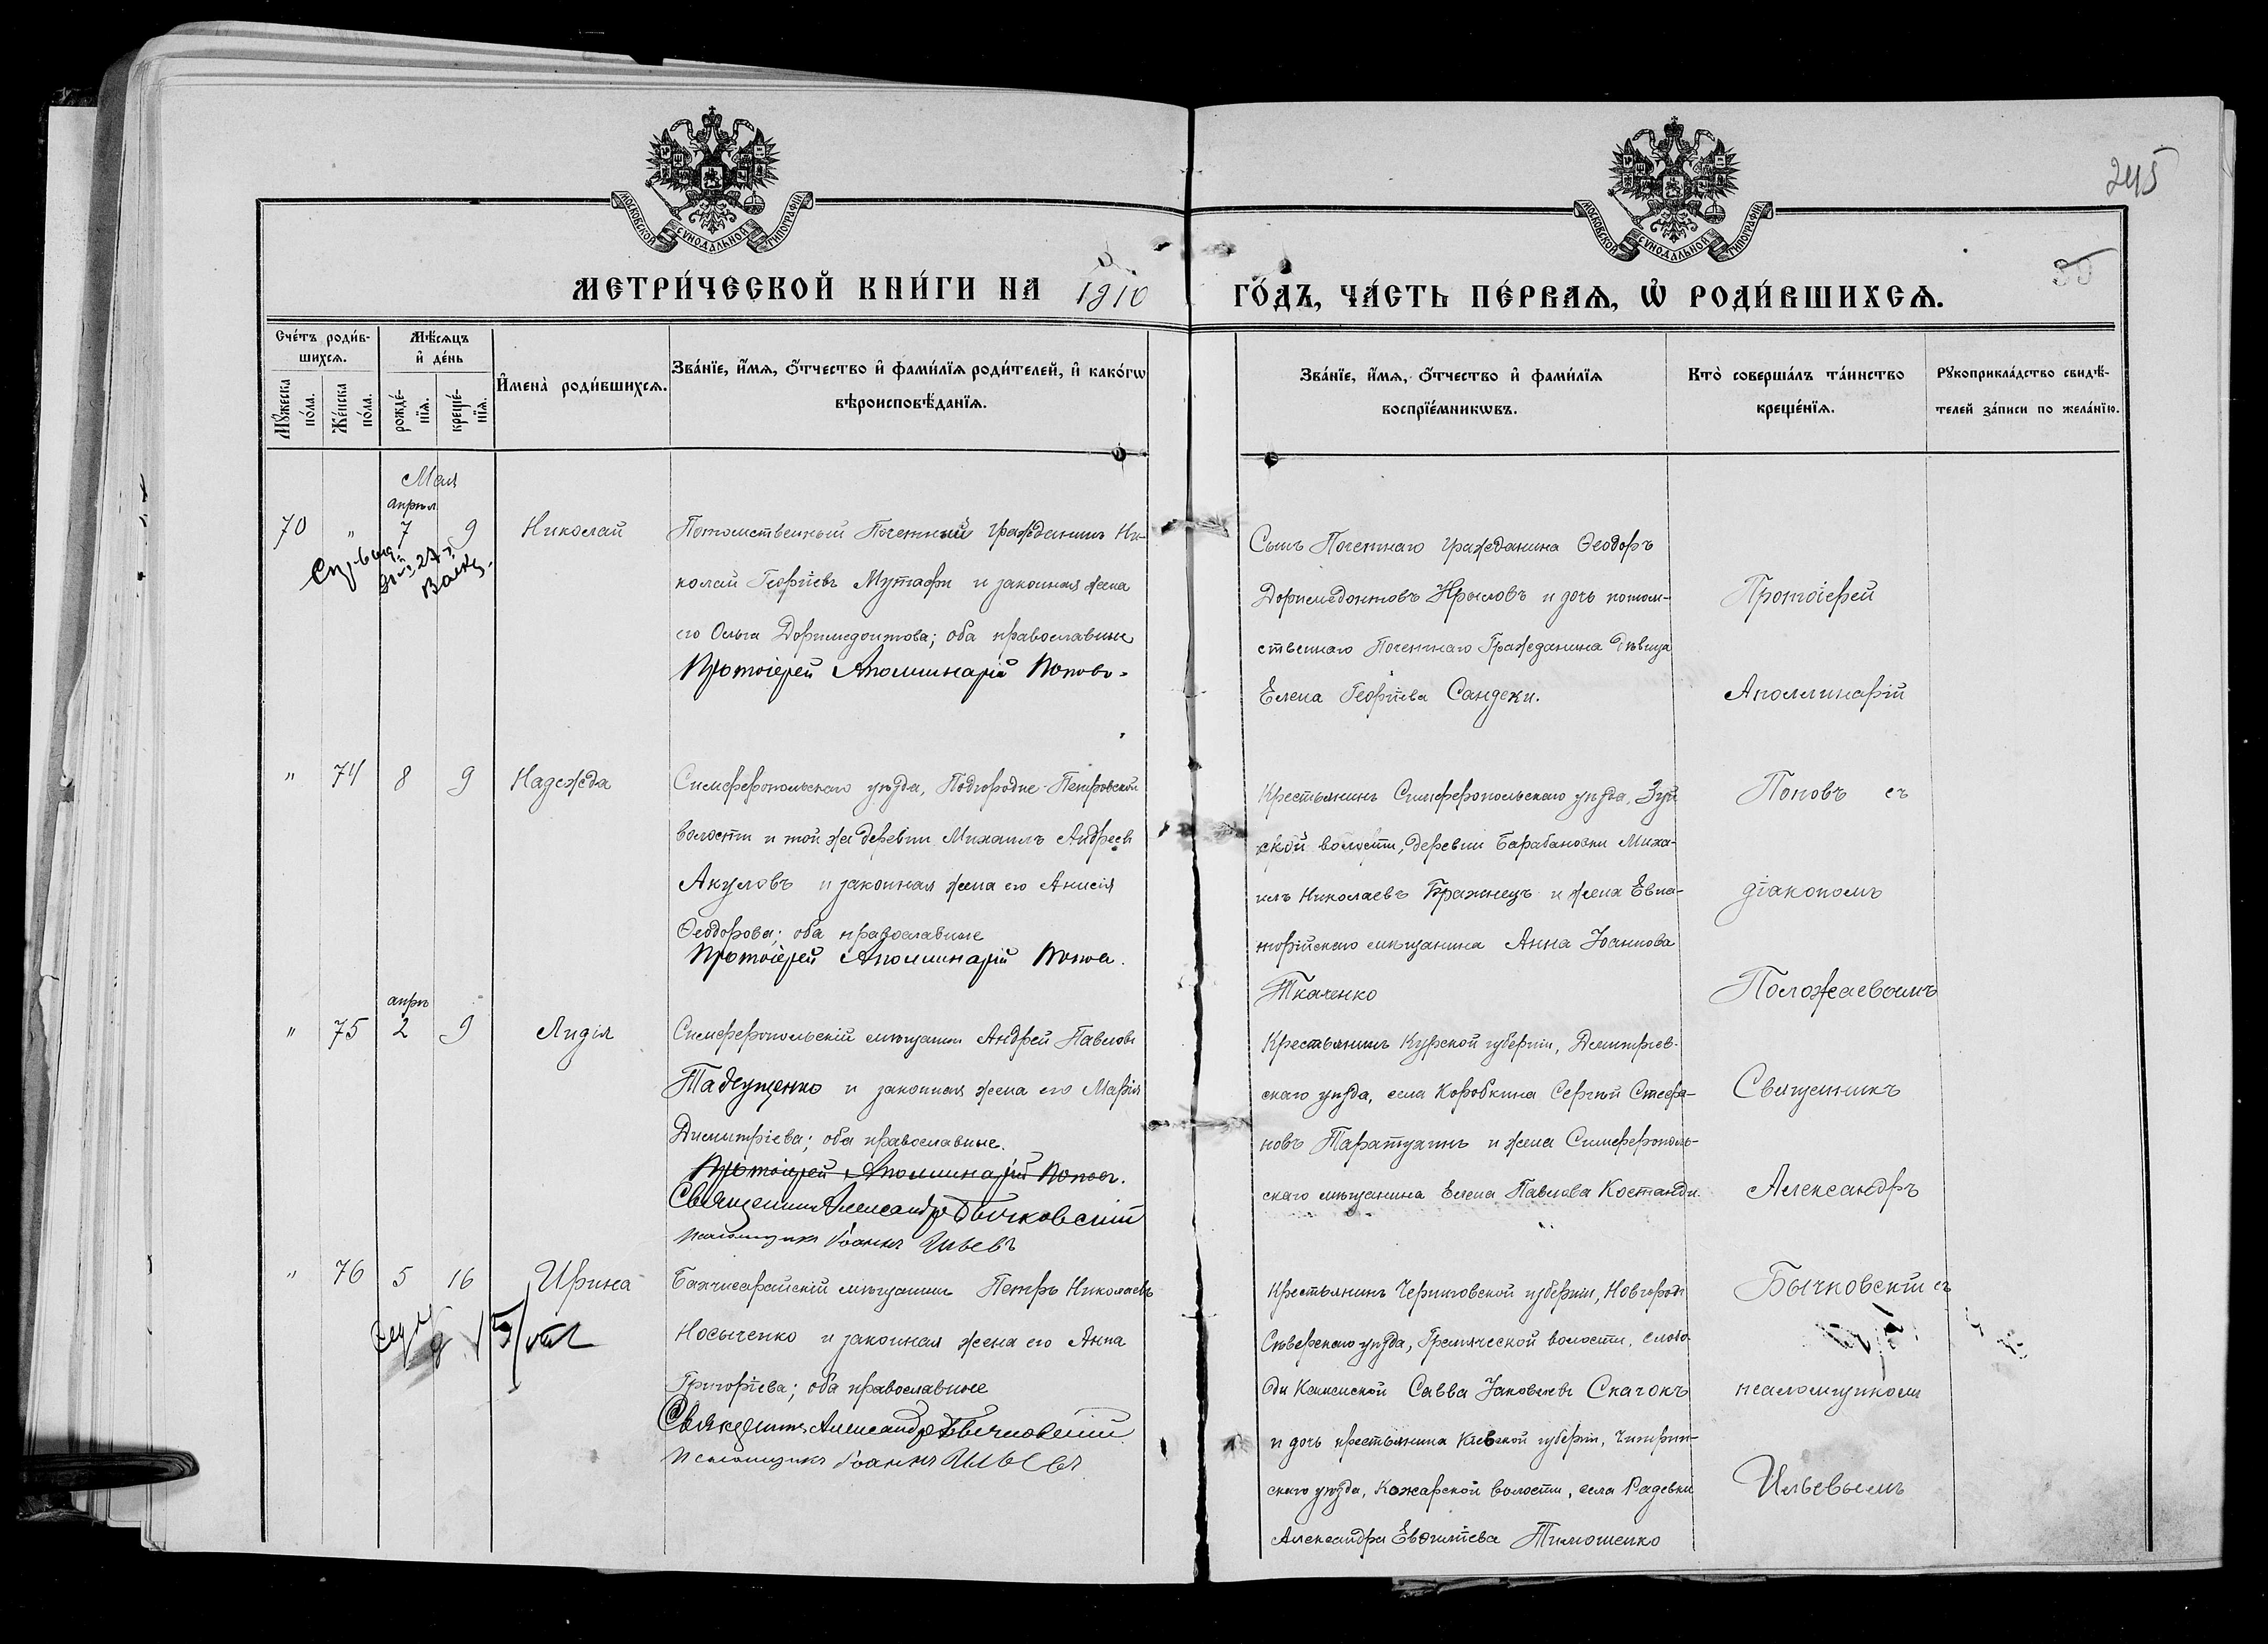 245
35
МОСКОВСКОЙ СѴНОДАЛЬНОЙ ТИПОГРАФІИ
МОСКОВСКОЙ СѴНОДАЛЬНОЙ ТИПОГРАФІИ
МЕТРИ́ЧЕСКОЙ КНИ́ГИ НА 1910 ГО́ДЪ, ЧА́СТЬ ПЕ́РВАѦ, Ѡ҆ РОДИ́ВШИХСѦ.
Сче́тъ роди́в-
шихсѧ.
Мꙋ́жеска по́ла.
Же́нска по́ла.
Мѣ́сѧцъ
и҆ де́нь
рожде́-
нїѧ.
креще́-
нїѧ.
И҆мена̀ роди́вшихсѧ.
Зва́нїе, и҆́мѧ, ѻ҆́тчество и҆ фами́лїѧ роди́телей, и҆ како́гѡ
вѣроисповѣ́данїѧ.
Зва́нїе, и҆́мѧ, ѻ҆́тчество и҆ фами́лїѧ
воспрїе́мникѡвъ.
Кто̀ соверша́лъ та́инство
креще́нїѧ.
Рꙋкоприкла́дство свидѣ́-
телей за́писи по жела́нїю.
Мая
апрѣл
70 " 7 9 Николай
Потомственный Почетный Гражданинъ Ни-
колай Георгіевъ Мутафи и законная жена
его Ольга Доримедонтова; оба православные
Протоіерей Аполлинарій Поповъ.
Сынъ Почетнаго Гражданина Ѳеодоръ
Доримедонтовъ Крыловъ и дочь потом-
ственнаго Почетнаго Гражданина дѣвица
Елена Георгіева Сандеки.
Протоіерей
Аполлинарій
" 74 8 9 Надежда
Симферопольскаго уѣзда, Подгородне-Петровской
волости и той же деревни Михаилъ Андреевъ
Акуловъ и законная жена его Анисія
Ѳеодорова; оба православные
Протоіерей Аполлинарій Поповъ.
Крестьянинъ Симферопольскаго уѣзда, Зуй
ской волости, деревни Барабановки Миха-
илъ Николаевъ Бражнецъ и жена Евпа-
торійскаго мѣщанина Анна Іоаннова
Ткаченко
Поповъ съ
діакономъ
Положаевымъ
апрѣ
" 75 2 9 Лидія
Симферопольскій мѣщанинъ Андрей Павловъ
Тадгущенко и законная жена его Марія
Димитріева; оба православные.
Протоіерей Аполлинарій Поповъ.
Священникъ Александръ Бычковскій
Псаломщикъ Іоаннъ Ильевъ
Крестьянинъ Курской губерніи, Дмитріев-
скаго уѣзда, села Коробкина Сергѣй Стефа-
новъ Таратухинъ и жена Симферополь-
скаго мѣщанина Елена Павлова Костанди.
Священникъ
Александръ
" 76 5 16 Ирина
Бахчисарайскій мѣщанинъ Петръ Николаевъ
Носыченко и законная жена его Анна
Григоріева; оба православные
Священникъ Александръ Бычковскій
Псаломщикъ Іоаннъ Ильевъ
Крестьянинъ Черниговской губерніи, Новгородъ
Сѣверскаго уѣзда, Гремяческой волости, слобо
ды Каменской Савва Іаковлевъ Скачокъ
и дочь крестьянина Кіевской губерніи, Чигрин-
скаго уѣзда, Кожарской волости, села Радевки
Александра Евѳиміева Тимошенко
Бычковскій съ
псаломщикомъ
Ильевымъ